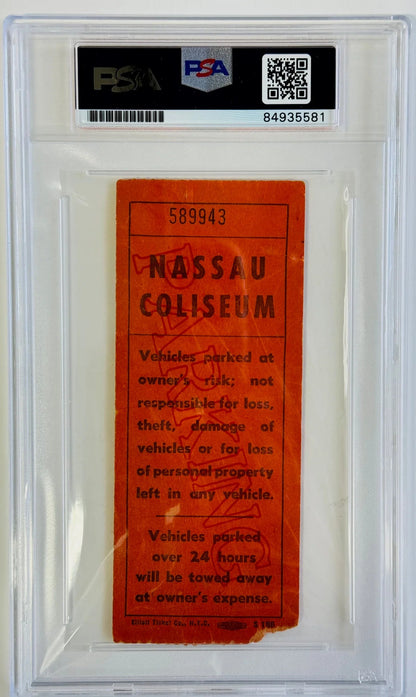 PSA PSA
84935581
589943
NASSAU
COLISEUM
PARKING
Vehicles parked at
owner's risk; not
responsible for loss,
theft, damage of
vehicles or for loss
of personal property
left in any vehicle.
Vehicles parked
over 24 hours
will be towed away
at owner's expense.
Elliott Ticket Co.